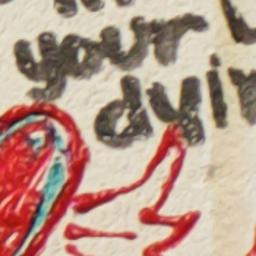 your
dyin